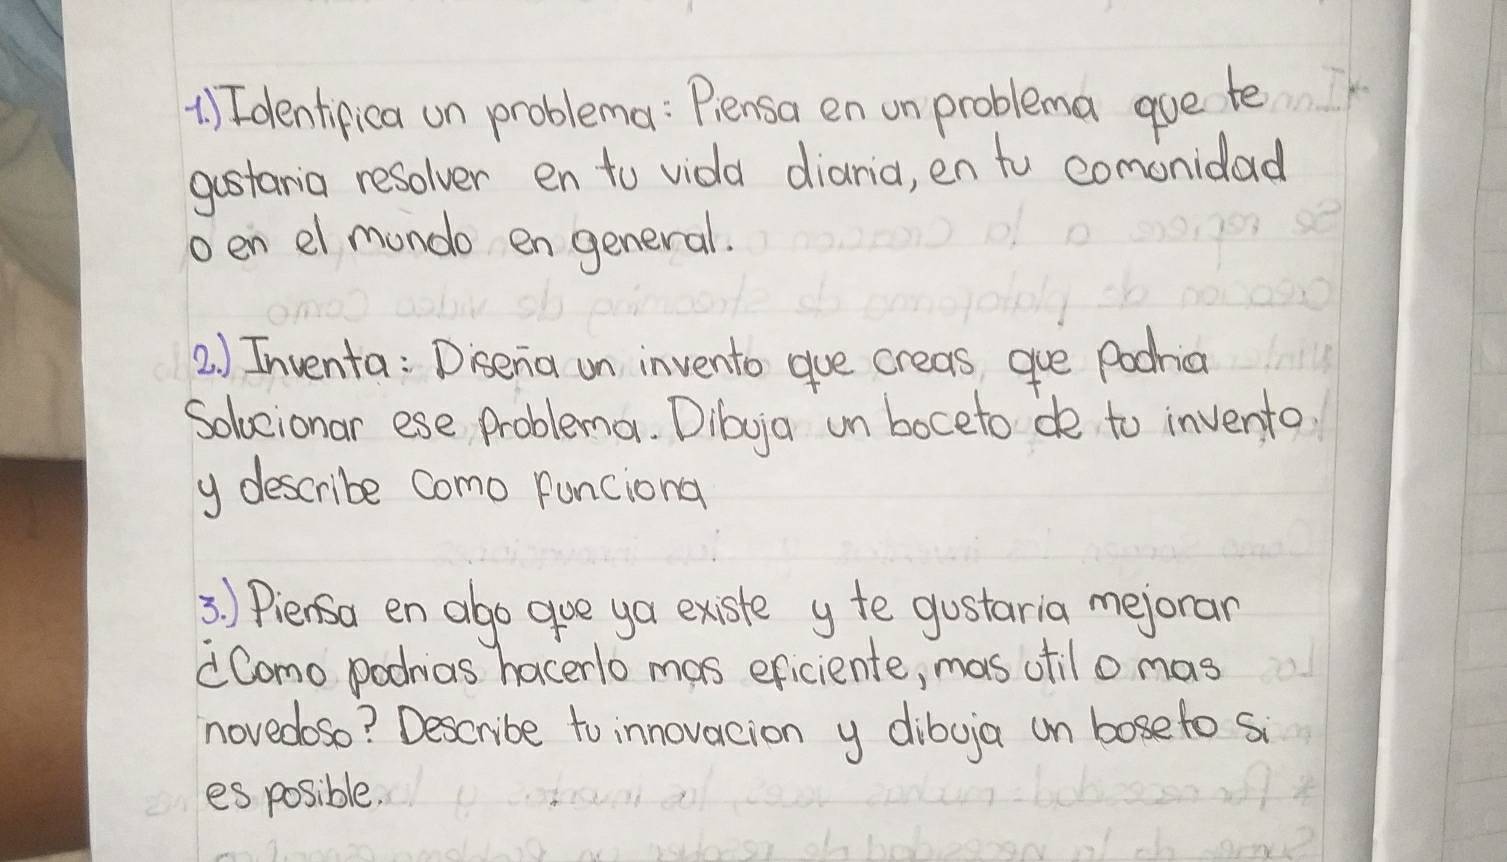 1.) Identifica un problema: Piensa en un problema que te
gustaria resolver en tu vida diaria, en tu comunidad
o en el mundo en general.
2.) Inventa: Diseña un invento que creas que podria
Solucionar ese problema. Dibuja un boceto de tu invento
y describe como funciona
3.) Piensa en algo que ya existe y te gustaria mejorar
¿Como podrias hacerlo mas eficiente, mas util o mas
novedoso? Describe tu innovacion y dibuja un boseto si
es posible.